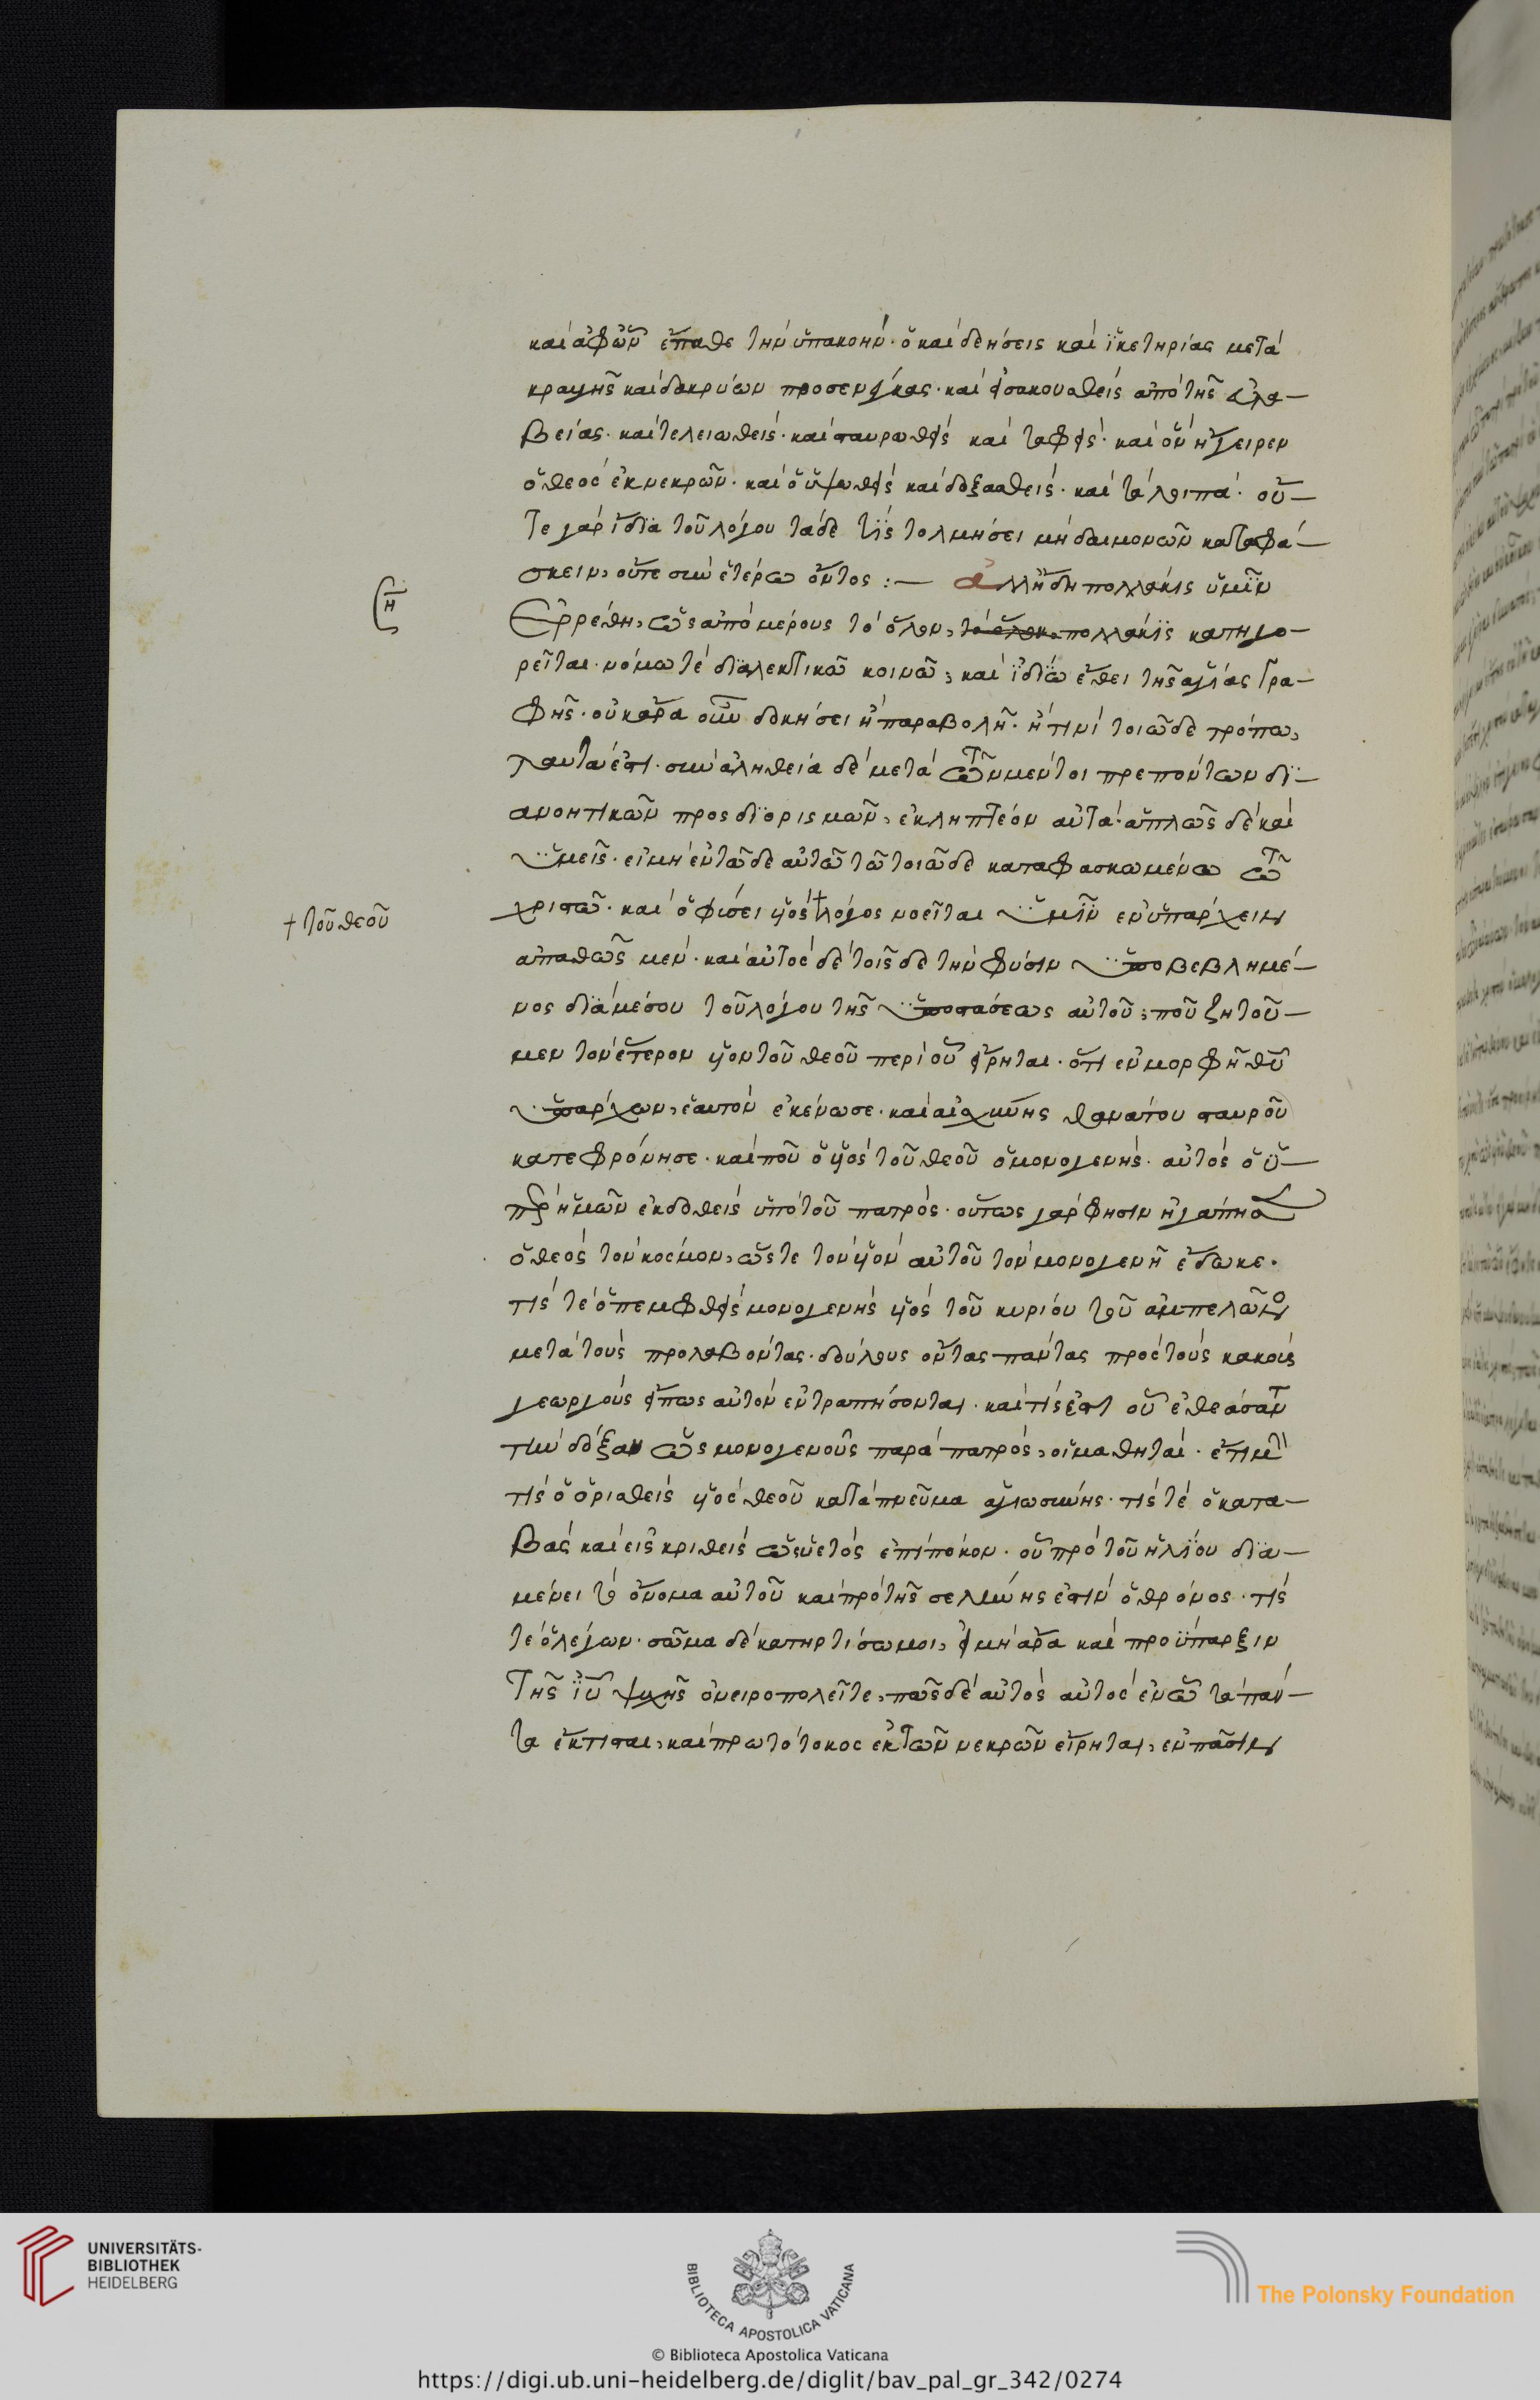 καὶ ἀφ' ὧν ἔπαθε τὴν ὑπακοήν· ὁ καὶ δεήσεις καὶ ἱκετηρίας μετὰ
κραυγῆς καὶ δακρύων προσενέγκας· καὶ εἰσακουσθεὶς ἀπὸ τῆς εὐλα-
βείας· καὶ τελειωθείς· καὶ σταυρωθεὶς καὶ ταφείς· καὶ ὃν ἤγειρεν
ὁ θεὸς ἐκ νεκρῶν· καὶ ὁ ὑψωθεὶς καὶ δοξασθείς· καὶ τὰ λοιπά· οὔ-
τε γὰρ ἴδια τοῦ λόγου τάδε τὶς τολμήσει μὴ δαιμονῶν καταφά-
σκειν, οὔτε σὺν ἑτέρω ὄντος :— ἀλλ' ἤδη πολλάκις ὑμῖν
η
Ἐρρέθη, ὡς ἀπὸ μέρους τὸ ὅλον, πολλάκις κατηγο-
ρεῖται· νόμω τὲ διαλεκτικῶ κοινῶ, καὶ ἰδίω ἔθει τῆς ἁγίας γρα-
φῆς· οὐκ ἄρα οὖν δοκήσει ἢ παραβολῆ· ἤ τινι τοιῶδε τρόπω,
ταῦτα ἐστί· σὺν ἀληθεία δὲ μετὰ τῶν μέντοι πρεπόντων δι-
ανοητικῶν προσδιορισμῶν, ἐκληπτέον αὐτά· ἁπλῶς δὲ καὶ
ὑμεῖς· εἰ μὴ ἐν τῶδε αὐτῶ τῶ τοιῶδε καταφασκωμένω τῶ
χριστῶ· καὶ ὁ φύσει υἱὸς + λόγος νοεῖται ὑμῖν ἐνυπάρχειν
+ τοῦ θεοῦ
ἀπαθῶς μέν· καὶ αὐτὸς δὲ τοῖς δε τὴν φύσιν ὑποβεβλημέ-
νος διὰ μέσου τοῦ λόγου τῆς ὑποστάσεως αὐτοῦ, ποῦ ζητοῦ-
μεν τὸν ἕτερον υἱὸν τοῦ θεοῦ περὶ οὗ εἴρηται· ὅτι ἐν μορφῆ θυ
ὑπάρχων, ἑαυτὸν ἐκένωσε· καὶ αἰσχύνης θανάτου σταυροῦ
κατεφρόνησε· καὶ ποῦ ὁ υἱὸς τοῦ θεοῦ ὁ μονογενής· αὐτὸς ὁ ὑ-
πὲρ ἡμῶν ἐκδοθεὶς ὑπὸ τοῦ πατρός· οὕτως γὰρ φησὶν ἠγάπησεν
ὁ θεὸς τὸν κόσμον, ὥστε τὸν υἱὸν αὐτοῦ τὸν μονογενῆ ἔδωκε.
τίς τὲ ὁ πεμφθεὶς μονογενὴς υἱὸς τοῦ κυρίου τοῦ ἀμπελῶνος
μετὰ τοὺς προλαβόντας· δούλους ὄντας πάντας πρὸς τοὺς κακοὺς
γεωργοὺς εἴπως αὐτὸν ἐντραπήσονται· καὶ τίς ἐστὶ οὗ ἐθεάσαντο
τὴν δόξαν ὡς μονογενοῦς παρὰ πατρός, οἱ μαθηταί· ἔτι μὴν
τίς ὁ ὁρισθεὶς υἱὸς θεοῦ κατὰ πνεῦμα ἁγιωσύνης· τίς τὲ ὁ κατα-
βὰς καὶ εἰσκριθεὶς ὡς ὑετὸς ἐπὶ πόκον· οὗ πρὸ τοῦ ἡλίου δια-
μένει τὸ ὄνομα αὐτοῦ καὶ πρὸ τῆς σελήνης ἐστὶν ὁ θρόνος· τίς
τὲ ὁ λέγων· σῶμα δὲ κατηρτίσω μοι, εἰ μὴ ἄρα καὶ προΰπαρξιν
τῆς ιυ ψυχῆς ὀνειροπολεῖτε, πῶς δὲ αὐτὸς αὐτὸς ἐν ὧ τὰ πάν-
τα ἔκτισται, καὶ πρωτότοκος ἐκ τῶν νεκρῶν εἴρηται, ἐν πᾶσιν
UNIVERSITÄTS-
BIBLIOTHEK
HEIDELBERG
BIBLIOTECA APOSTOLICA VATICANA
The Polonsky Foundation
© Biblioteca Apostolica Vaticana
https://digi.ub.uni-heidelberg.de/diglit/bav_pal_gr_342/0274